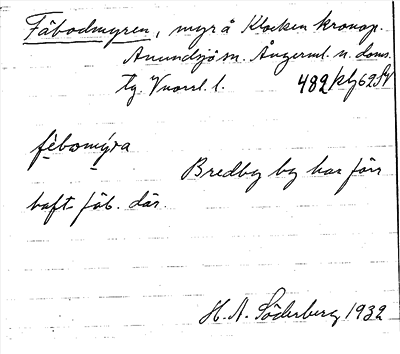 Fäbodmyren, myr å Klocken kronop.
Anundsjö sn. Ångerml. n. doms.
Tg. Vuorrl. l. 482/kb 62
fèbomýra
Bredby by har förr
haft fäb. där.
H. A. Söderberg 1932